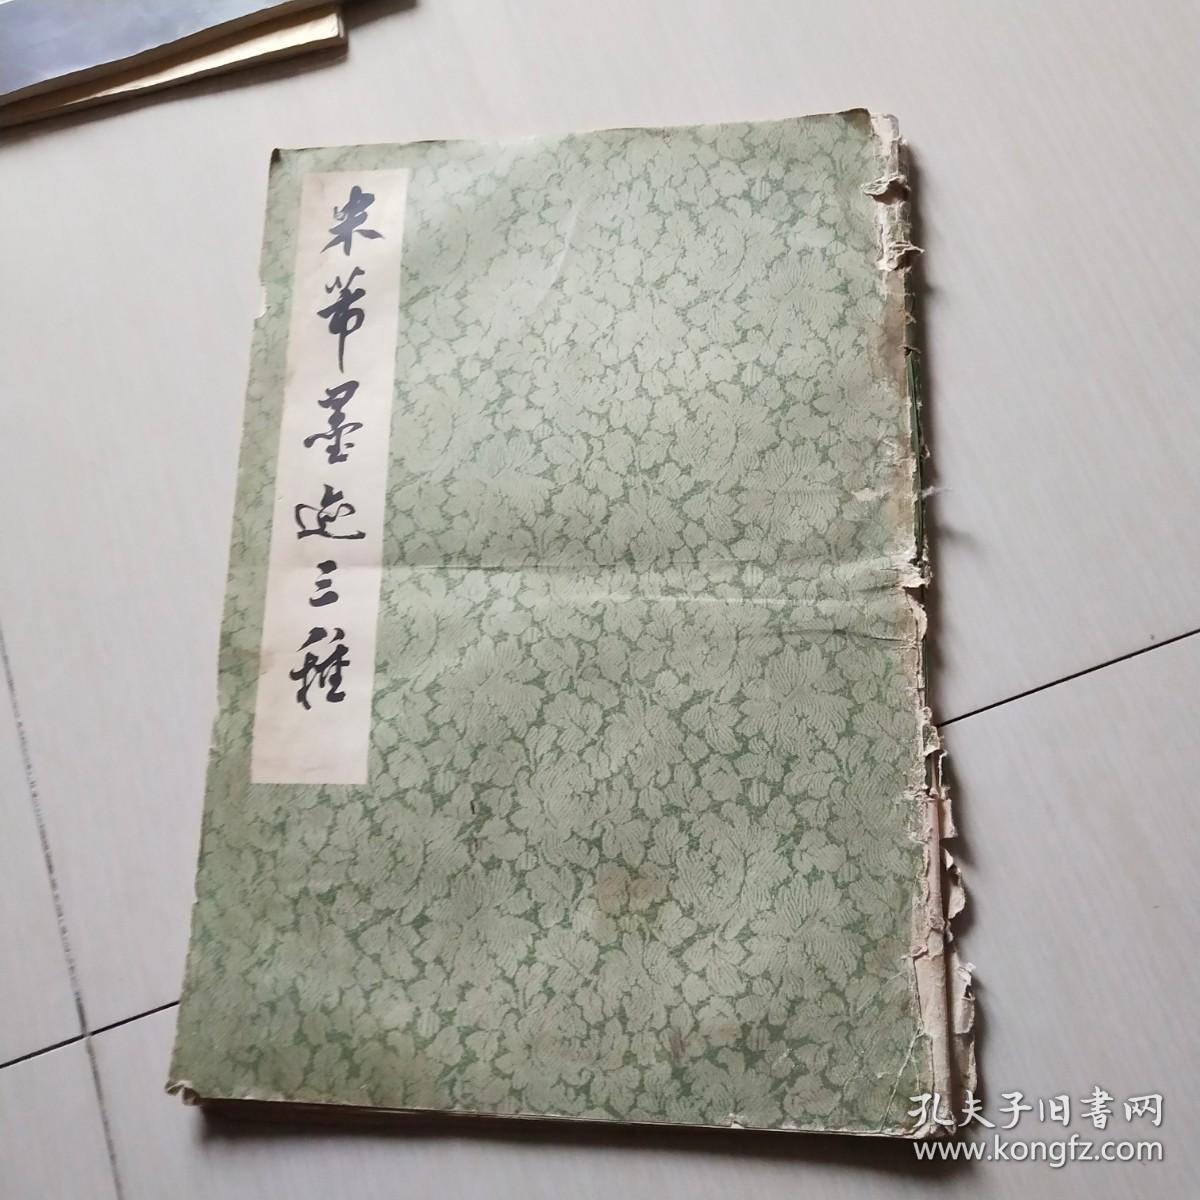 米芾墨迹三種
孔夫子旧書网
www.kongfz.com